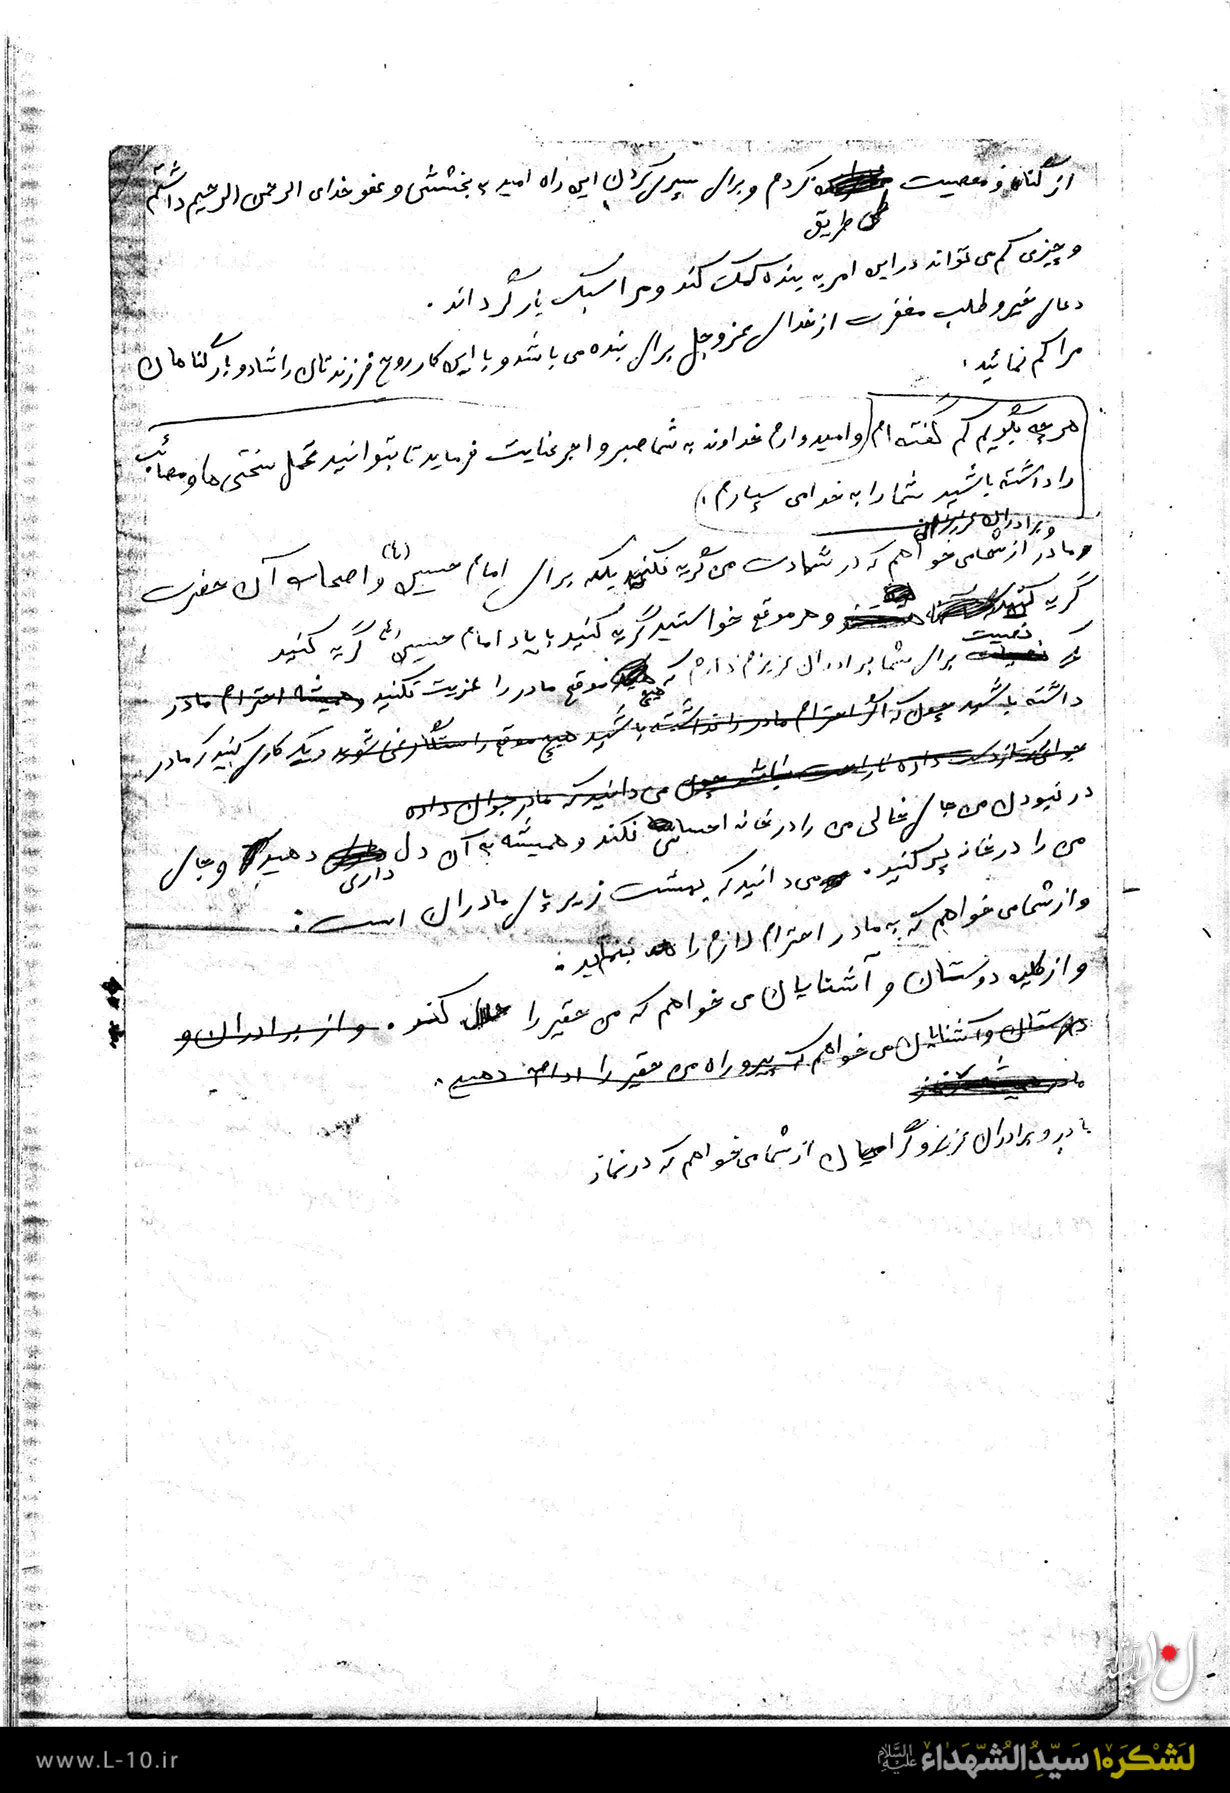 از گناه و معصیت کردم و برای سپری کردن این راه امید به بخششی و عفو خدای الرحمن الرحیم داشتم
طی طریق
و چیزی کم می تواند در این امر به بنده کمک کند و مرا سبک بار گرداند .
دعای خیر و طلب مغفرت از خدای عزوجل برای بنده می باشد و با این کار روح فرزندتان را شاد و بار گناهان
مرا کم نمائید .
هر چه بگویم کم گفته ام (وامیدوارم خداوند به شما صبر و اجر عنایت فرماید تا بتوانید تحمل سختی ها و مصائب
را داشته باشید شما را به خدا می سپارم .)
و برادران عزیزتان
و مادر از شما می خواهم که در شهادت من گریه نکنید بلکه برای امام حسین (ع) و اصحاب آن حضرت
گریه کنید و هر موقع خواستید گریه کنید با یاد امام حسین (ع) گریه کنید
نصیحت برای شما برادران عزیزم دارم که هیچ موقع مادر را عزیت نکنید و همیشه احترام مادر
داشته باشید چون که اگر احترام مادر را نداشته باشید هیچ موقع رستگار نمی شوید و یک کاری کنید که مادر
جوانی که از دست داده ناراحت نباشد چون می دانید که مادر جوان داده
در نبودن من جای خالی من را در خانه احساس نکند و همیشه به آن دل داری دهید و جای
من را در خانه پر کنید . می دانید که بهشت زیر پای مادران است .
و از شما می خواهم که به مادر احترام لازم را بنمایید .
و از کلیه دوستان و آشنایان می خواهم که من حقیر را حلال کنند . و از برادران و
دوستان و آشنایان می خواهم که پیرو راه من حقیر را ادامه دهید .
پدر و برادران عزیز و گرامیان از شما می خواهم که در نماز
لَشکَر۱۰ سَیِّدِالشُّهَداء عَلَیهِ السَّلام
www.L-10.ir